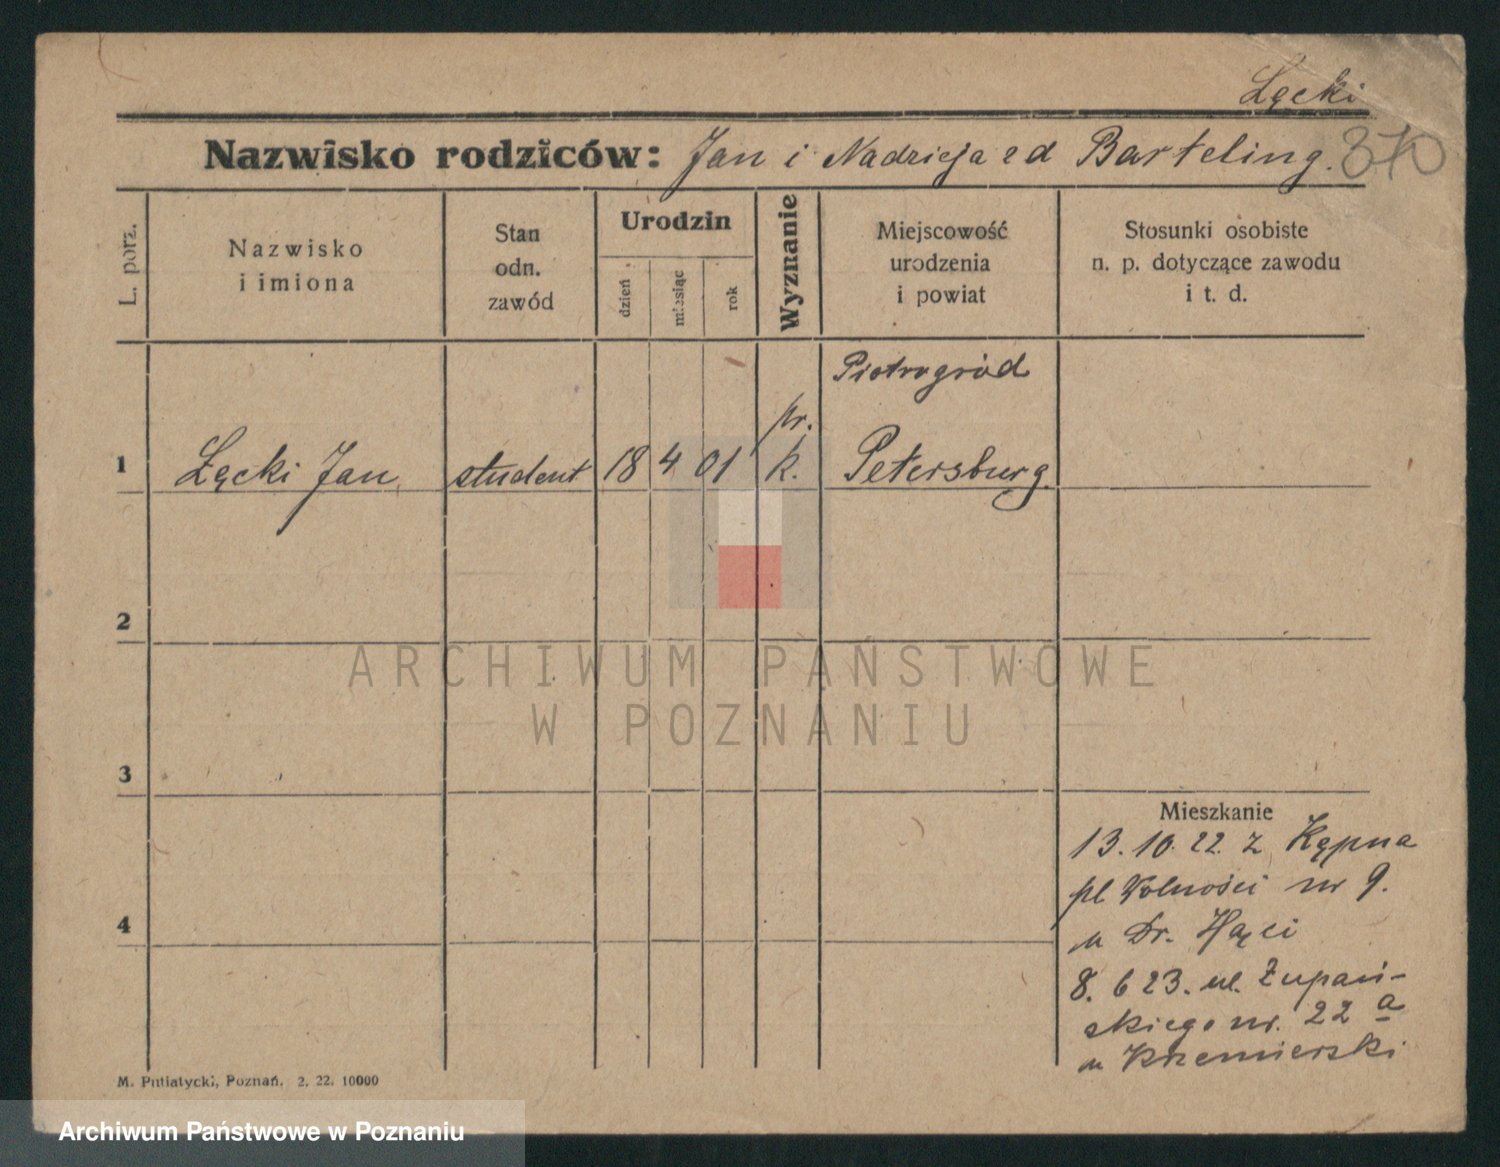 Łęcki
Nazwisko rodziców: Jan i Nadzieja zd Barteling. 370
L. porz.
Nazwisko i imiona
Stan odn. zawód
Urodzin
dzień
miesiąc
rok
Wyznanie
Miejscowość urodzenia i powiat
Stosunki osobiste n. p. dotyczące zawodu i t. d.
Piotrogród
pr.
1 Łęcki Jan student 18 4 01 k. Petersburg
2
3
4
Mieszkanie
13.10.22. z Kępna
pl Wolności nr 9.
u Dr.
8. 6 23. ul. Żupań-
skiego nr. 22 a
u Krzemierski
M. Putiatycki, Poznań. 2. 22. 10000
ARCHIWUM PAŃSTWOWE
W POZNANIU
Archiwum Państwowe w Poznaniu